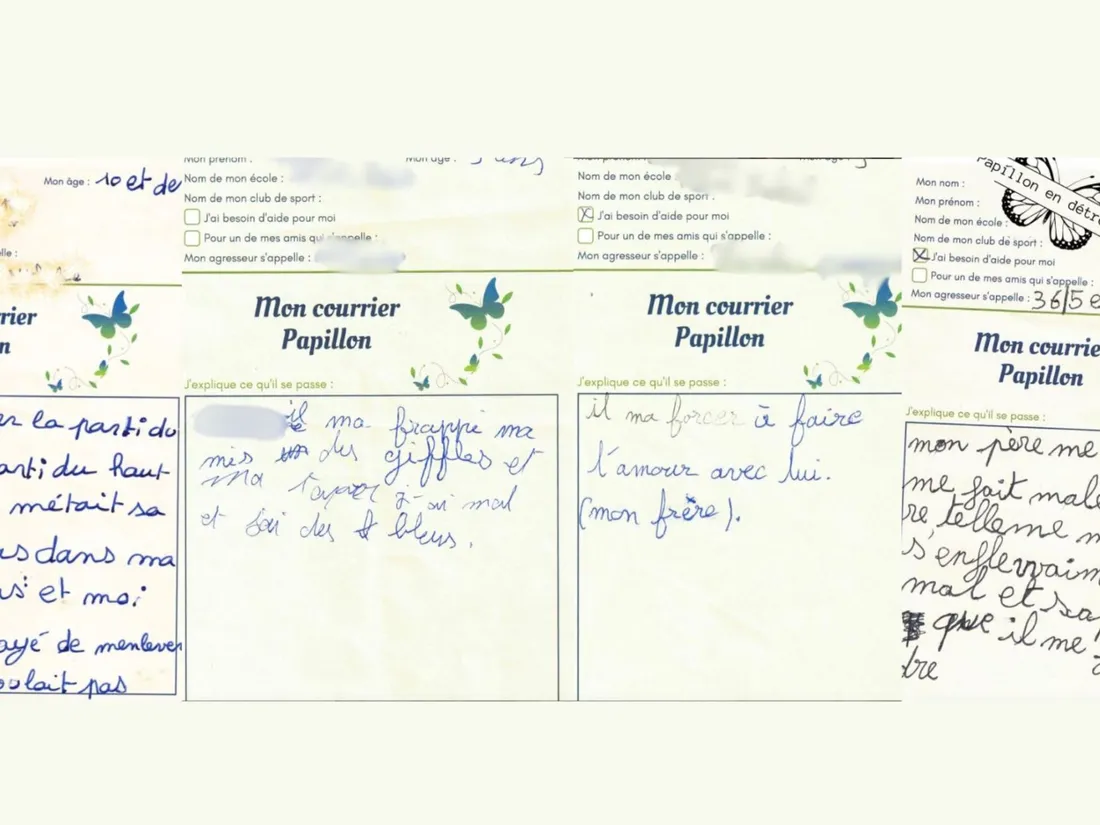 Mon âge : 10 et de
elle :
rier
n
er la parti du
arti du haut
métait sa
us dans ma
et moi
ayé de menlever
oulait pas
Mon prénom :
Mon âge :
Nom de mon école :
Nom de mon club de sport :
J'ai besoin d'aide pour moi
Pour un de mes amis qui s'appelle :
Mon agresseur s'appelle :
Mon courrier
Papillon
J'explique ce qu'il se passe :
il ma frappé ma
mis des giffles et
Ma taper j'ai mal
et jai des bleus.
Nom de mon école
Nom de mon club de sport :
J'ai besoin d'aide pour moi
Pour un de mes amis qui s'appelle :
Mon agresseur s'appelle :
Mon courrier
Papillon
J'explique ce qu'il se passe :
il ma forcer à faire
l'amour avec lui.
(mon frère).
Papillon en détre
Mon nom :
Mon prénom :
Nom de mon école :
Nom de mon club de sport :
J'ai besoin d'aide pour moi
Pour un de mes amis qui s'appelle :
Mon agresseur s'appelle : 36/5e
Mon courrie
Papillon
J'explique ce qu'il se passe :
mon père me
me fait male
re, telleme m
s'enfle vraim
mal et sa
que il me
dre